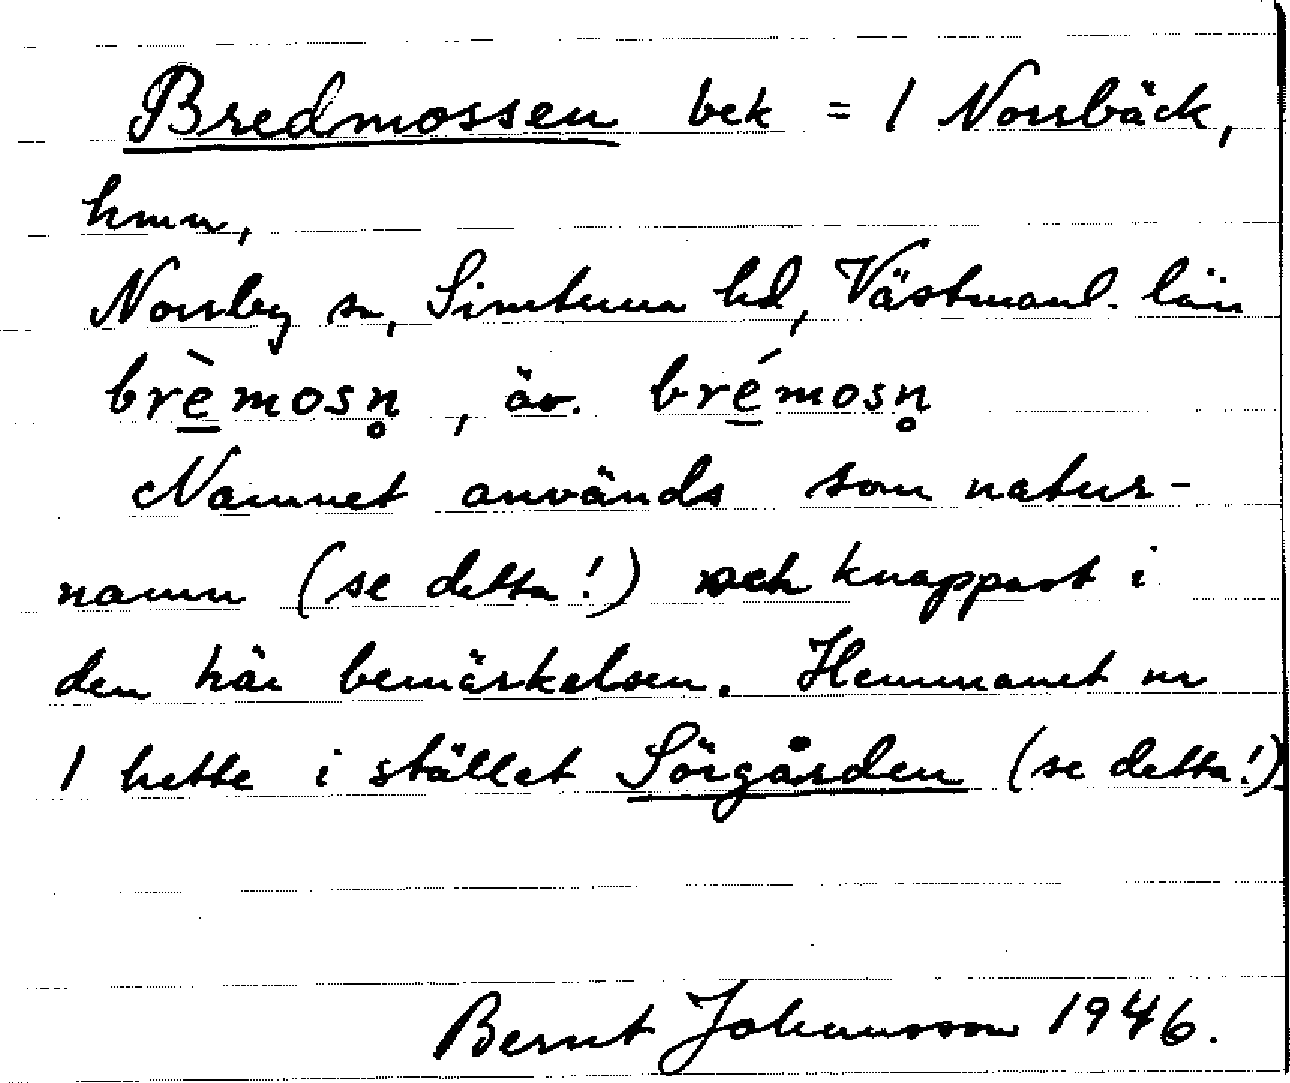 Bredmossen bek = 1 Norrbäck,
hmn,
Norrby sn, Simtuna hd, Västmanl. län
brèmosn̥, äv. brémosn̥
Namnet används som natur-
namn (se detta!) och knappast i
den här bemärkelsen. Hemmanet nr
1 hette i stället Sörgården (se detta!)
Bernt Johansson 1946.